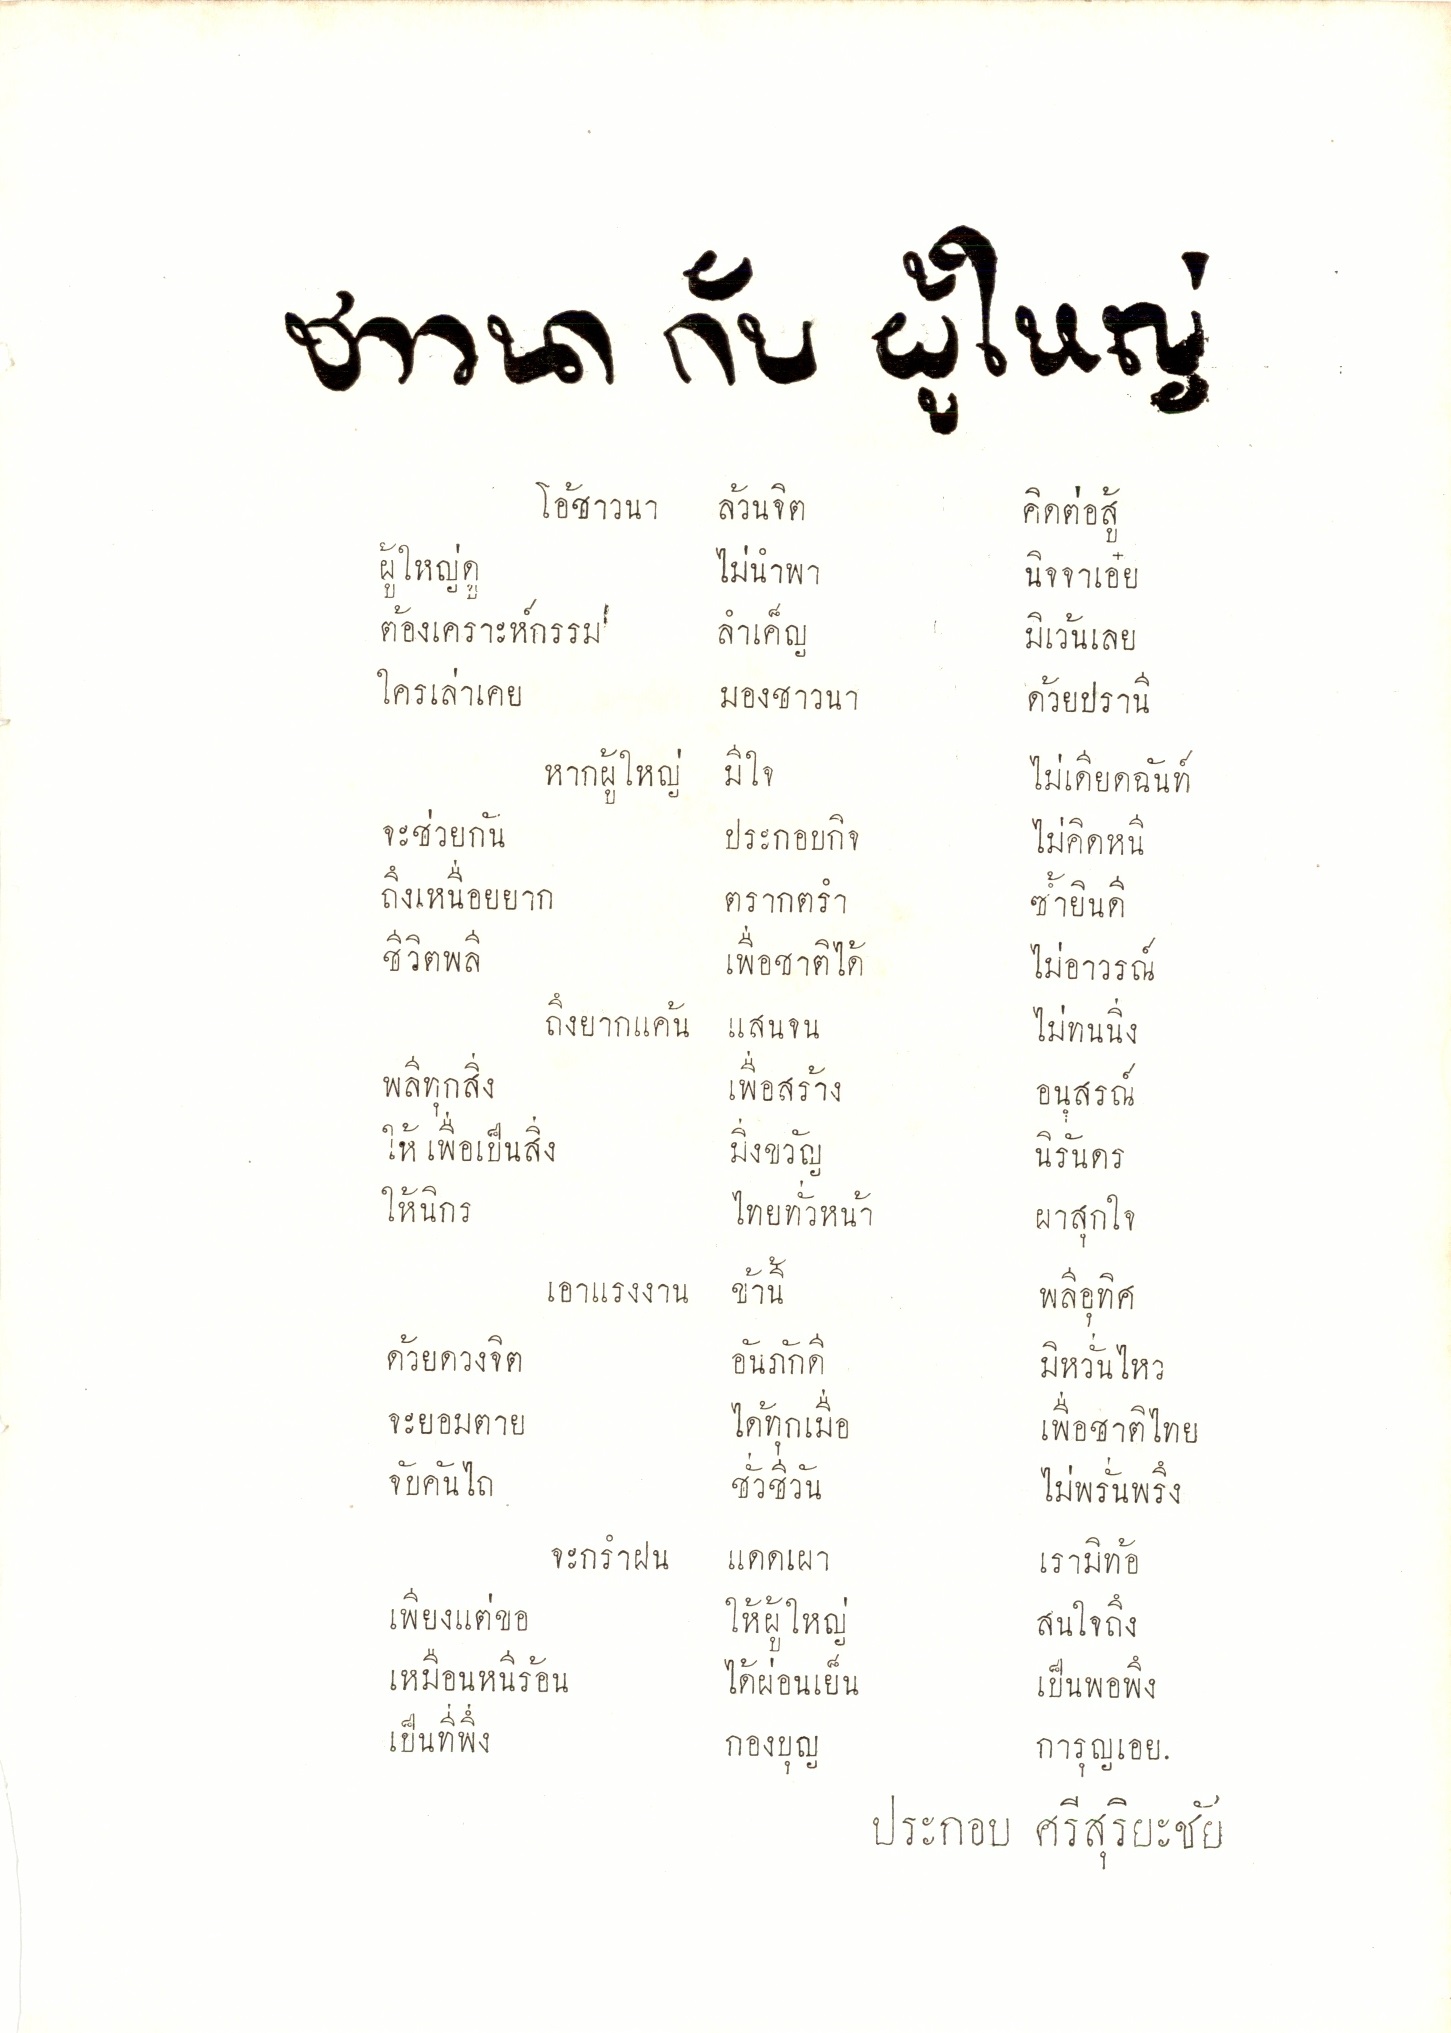 ชาวนา กับ ผู้ใหญ่
โอ้ชาวนา ล้วนจิต คิดต่อสู้
ผู้ใหญ่ดู ไม่นำพา นิจจาเอ๋ย
ต้องเคราะห์กรรม ลำเค็ญ มิเว้นเลย
ใครเล่าเคย มองชาวนา ด้วยปรานี
หากผู้ใหญ่ มีใจ ไม่เดียดฉันท์
จะช่วยกัน ประกอบกิจ ไม่คิดหนี
ถึงเหนื่อยยาก ตรากตรำ ซ้ำยินดี
ชีวิตพลี เพื่อชาติได้ ไม่อาวรณ์
ถึงยากแค้น แสนจน ไม่ทนนิ่ง
พลีทุกสิ่ง เพื่อสร้าง อนุสรณ์
ให้ เพื่อเป็นสิ่ง มิ่งขวัญ นิรันดร
ให้นิกร ไทยทั่วหน้า ผาสุกใจ
เอาแรงงาน ข้านี้ พลีอุทิศ
ด้วยดวงจิต อันภักดี มิหวั่นไหว
จะยอมตาย ได้ทุกเมื่อ เพื่อชาติไทย
จับคันไถ ชั่วชีวัน ไม่พรั่นพรึง
จะกรำฝน แดดเผา เรามิท้อ
เพียงแต่ขอ ให้ผู้ใหญ่ สนใจถึง
เหมือนหนีร้อน ได้ผ่อนเย็น เป็นพอพึง
เป็นที่พึ่ง กองบุญ การุญเอย.
ประกอบ ศรีสุริยะชัย